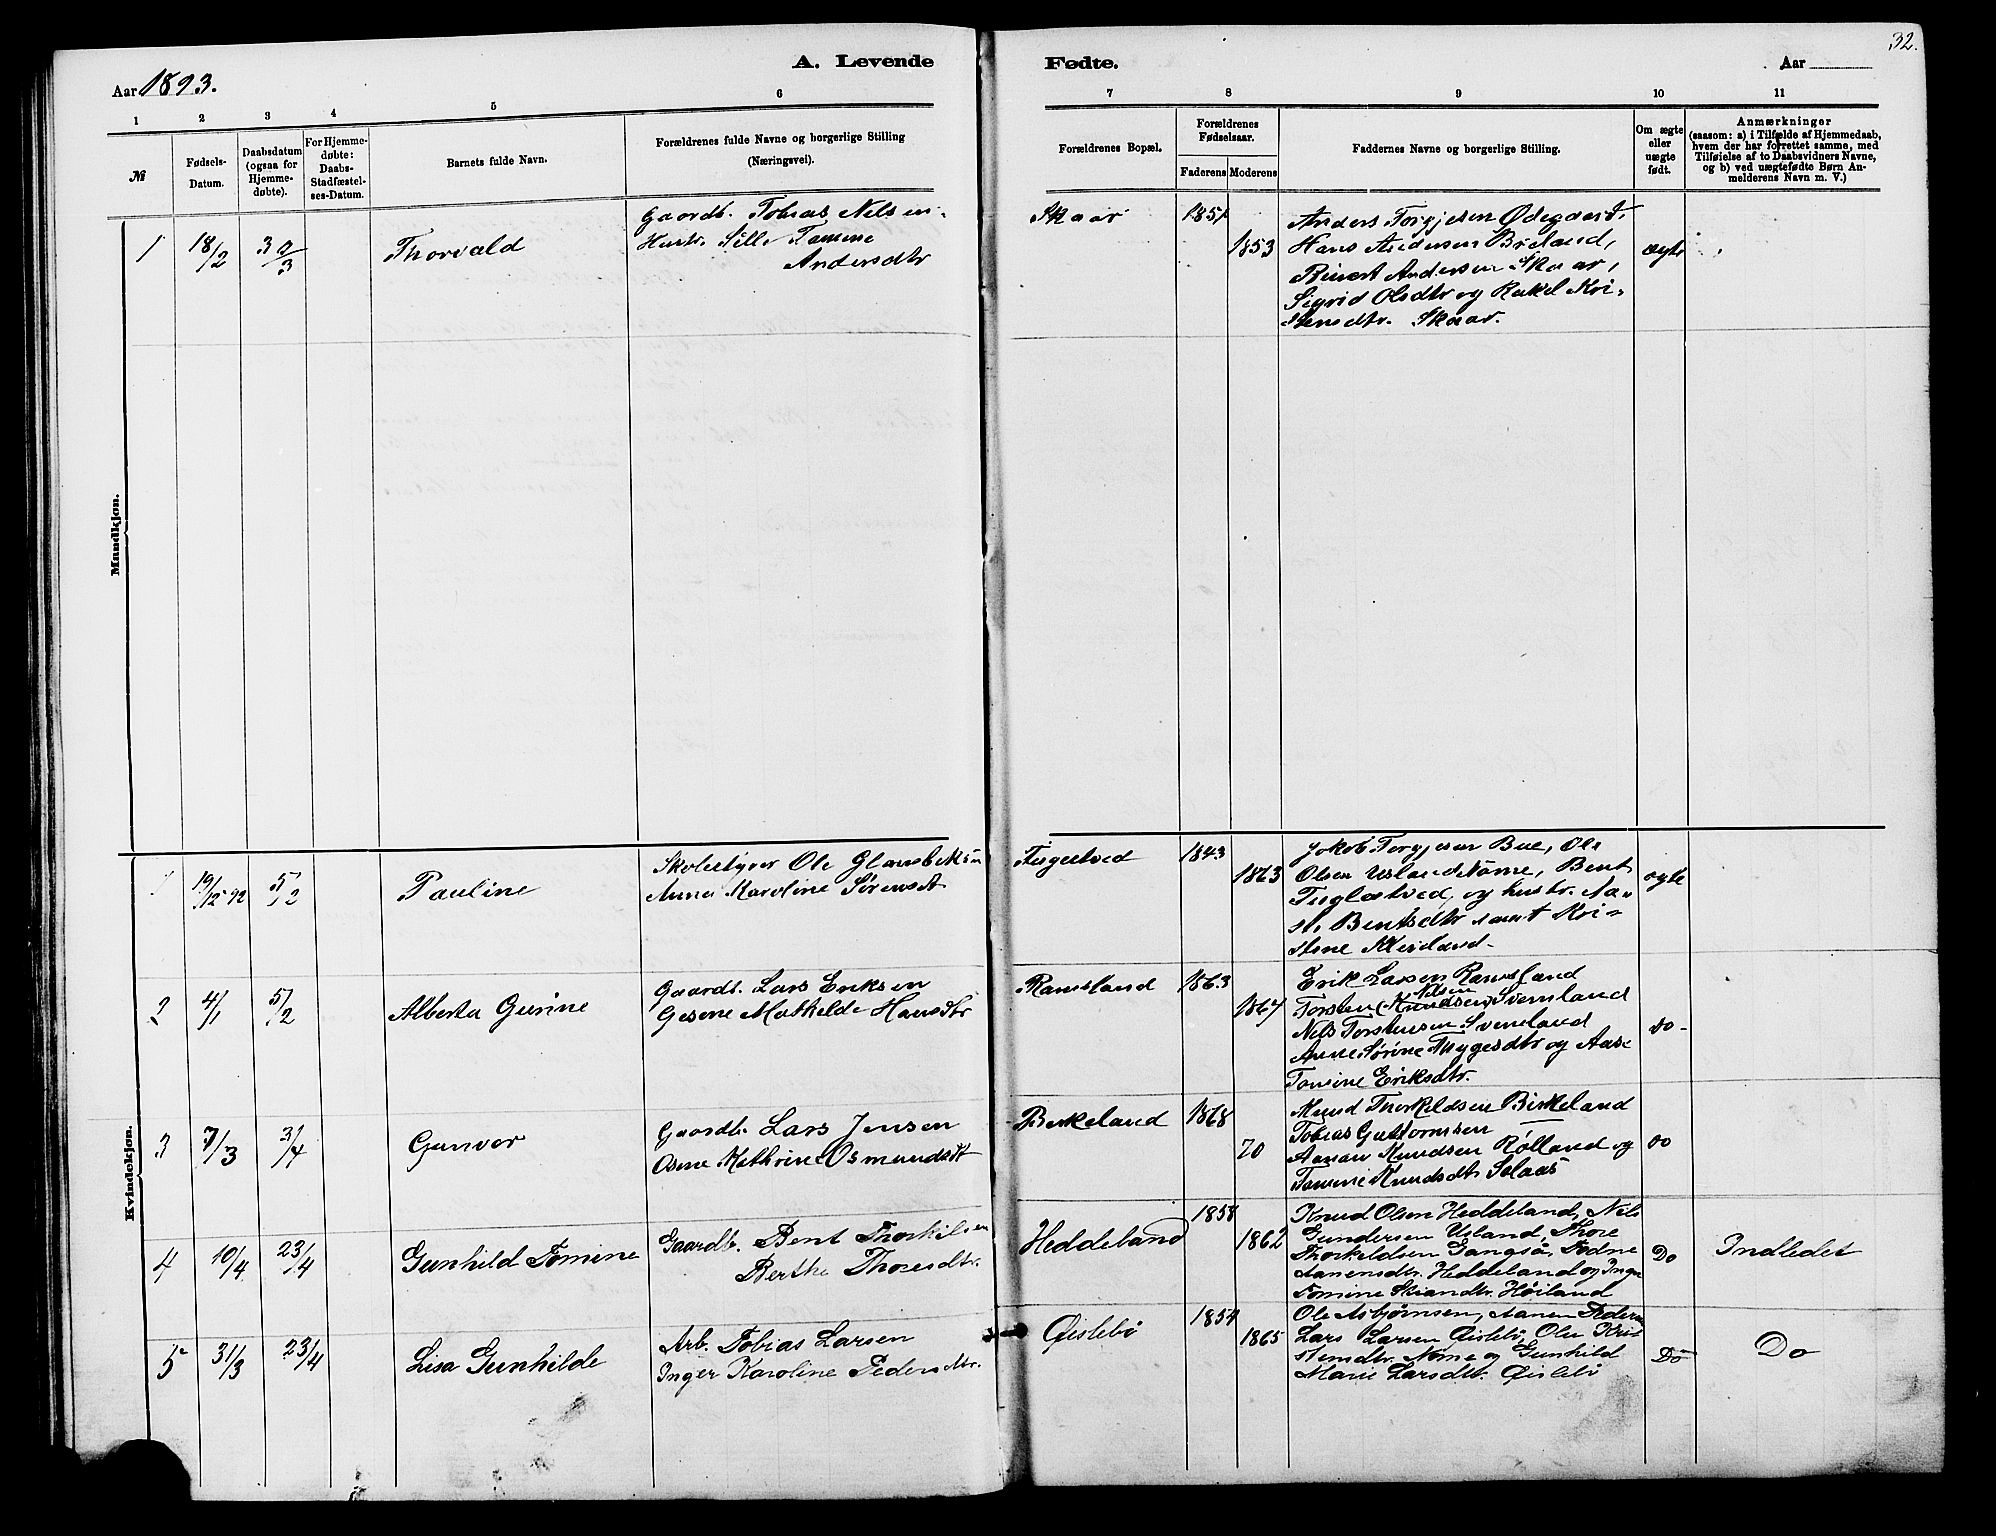 32.
A. Levende
Fødte.
Aar 1893.
Aar
1 2 3 4 5 6
7 8 9 10 11
№
Fødsels-
Datum.
Daabsdatum
(ogsaa for
Hjemme-
døbte).
For Hjemme-
døbte:
Daabs-
Stadfæstel-
ses-Datum.
Barnets fulde Navn.
Forældrenes fulde Navne og borgerlige Stilling
(Næringsvei).
Forældrenes Bopæl.
Forældrenes
Fødselsaar.
Faderens
Moderens
Faddernes Navne og borgerlige Stilling.
Om ægte
eller
uægte
født.
Anmærkninger
(saasom: a) i Tilfælde af Hjemmedaab,
hvem der har forrettet samme, med
Tilføielse af to Daabsvidners Navne,
og b) ved uægtefødte Børn An-
melderens Navn m. V.)
Mandkjøn.
1 18/2 Thorvald
Gaardb. Tobias Nielsen.
Hustr. Sille Tomine
Andersdtr
Skaar
1851
1853
Anders Torgjesen Ødegaard,
Hans Andersen Breland,
Andersen Skaar,
Sigrid Olsdtr og Rakel Kri-
stensdtr. Skaar.
ægte
Kvindekjøn.
1 19/12 92 5/2 Pauline
Ole
Anna Karoline Sørensdt
1843
1863
Jokob Torgjesen Bue, Ole
Olsen Usland Nome, Bent
og hustr. Aa-
se Bentsdtr samt Kri-
stene
ægte
2 4/1 5/2 Alberta Gurine
Gaardb. Lars Eriksen
Gesene Mathilde Hansdtr
Ramsland
1863
1867
Erik Larsen Ramsland
Nilsen
Torsten (Knudsen) Sveinland
Nels Torstensen Sveneland
Anne Sørine Thygesdtr og Aase
Tomine Eriksdtr.
do-
3 7/3 3/4 Gunvor
Gaardb. Lars Jensen
Osene Kathrine Osmundsdt
Birkeland
1868
70
Knud Thorkildsen Birkeland
Tobias Guttormsen
Aanen Knudsen Rølland og
Tomine Knudsdt. Solaas
do
4 10/4 23/4 Gunhild Tomine
Gaardbr. Bent Thorkilsen
Berthe Thoresdtr.
Heddeland
1858
1862
Knud Olsen Heddeland, Nils
Gundersen Usland, Thore
Thorkeldsen Gangså, Todne
Aanensdtr. Heddeland og Inger
Tomine Høiland
Do
Indledet
5 31/3 23/4 Lisa Gunhilde
Arb. Tobias Larsen
Inger Karoline Pedersdtr.
Øislebø
1854
1865
Ole Asbjørnsen, Aanen Pedersen
Lars Larsen Øislebø, Olea Krist
stensdtr. Nome og Gunhild
Marie Larsdtr. Øislebø
Do
Do